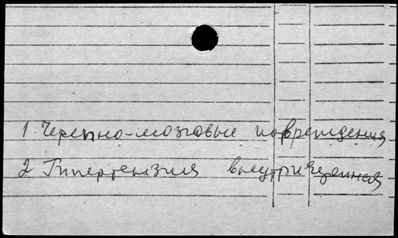 1. Черепно-мозговые повреждения
2 Гипертензия внутричерепная